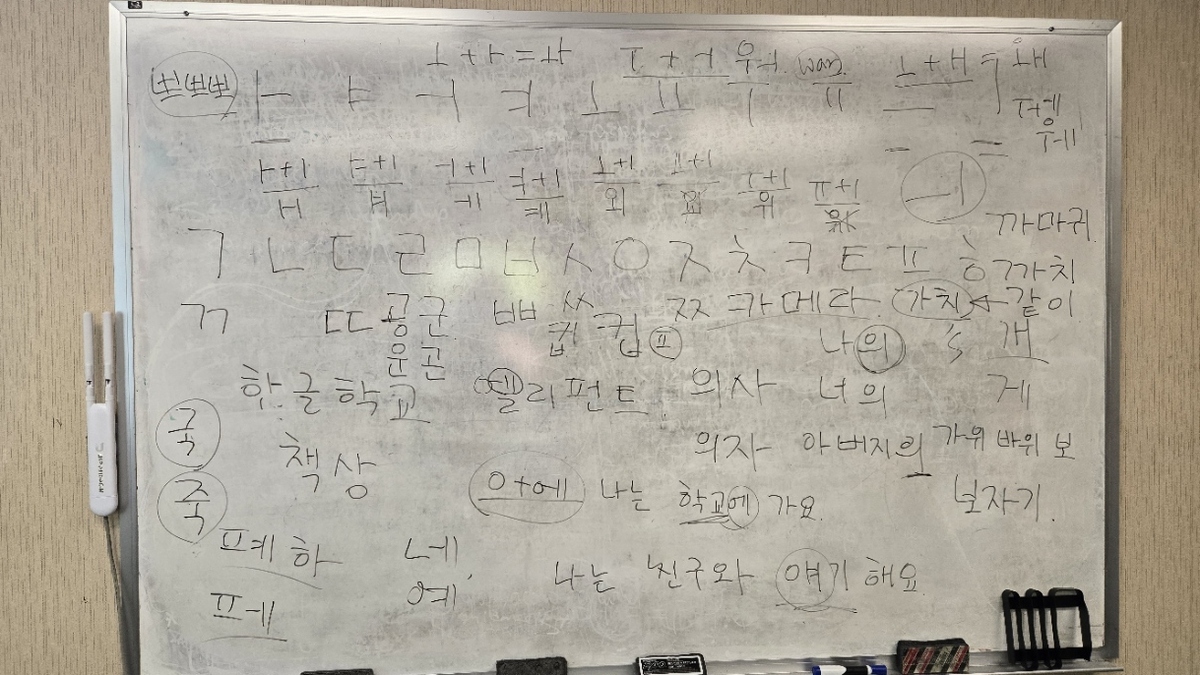 ㅗ + ㅏ = ㅘ ㅜ + ㅓ 워 won. ㅗ + ㅐ = 왜
뽀뽀뽀 ㅏ ㅑ ㅓ ㅕ ㅗ ㅛ ㅜ ㅠ ㅡ ㅣ
웨
ㅏ+ㅣ ㅑ+ㅣ ㅓ+ㅣ ㅕ+ㅣ ㅗ+ㅣ ㅛ+ㅣ ㅜ+ㅣ ㅠ+ㅣ ㅢ
ㅐ ㅒ ㅔ ㅖ 외 위
까마귀
ㄱ ㄴ ㄷ ㄹ ㅁ ㅂ ㅅ ㅇ ㅈ ㅊ ㅋ ㅌ ㅍ ㅎ 까치
ㄲ ㄸ 공군 ㅃ ㅆ ㅉ 카메라 가치 ← 같이
운곤 컵 ㅍ 나의 's 개
한글학교 텔리펀트 의사 너의 게
국 책상 의자 아버지의 가위 바위 보
죽 ㅇ+에 나는 학교에 가요. 보자기.
폐하 네
페 예 나는 친구와 얘기 해요